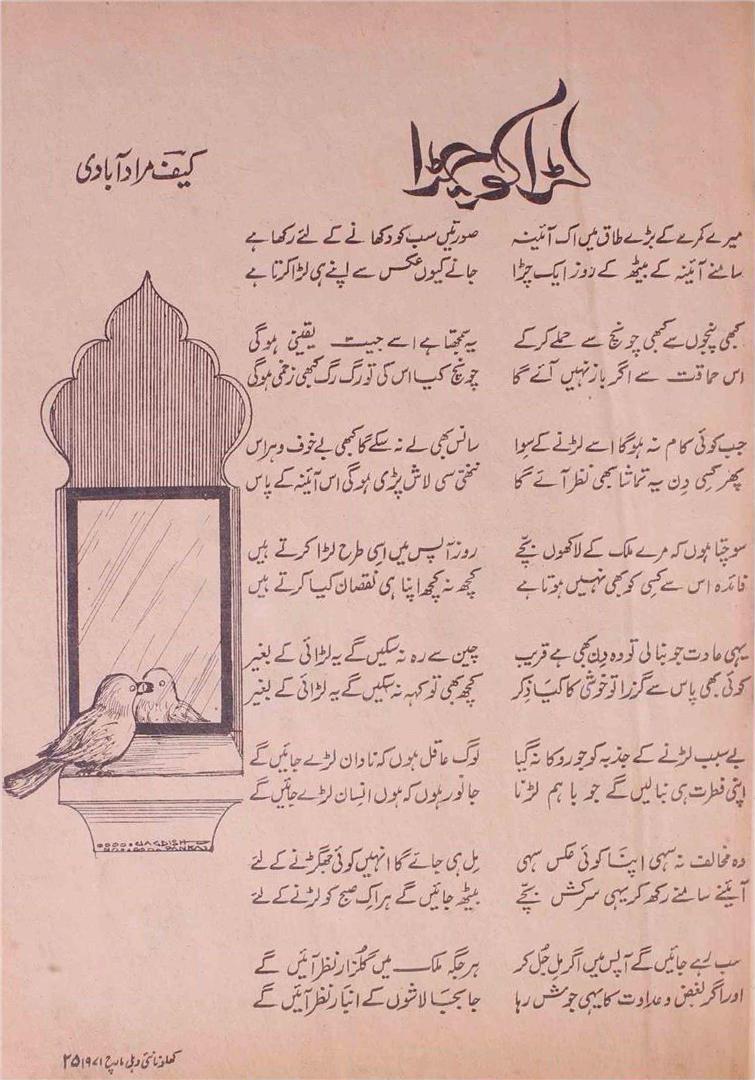 لڑاکو چڑا
کیف مرادآبادی
میرے کمرے کے بڑے طاق میں اک آئینہ صورتیں سب کو دکھانے کے لئے رکھا ہے
سامنے آئینہ کے بیٹھ کے روز ایک چڑا جانے کیوں عکس سے اپنے ہی لڑا کرتا ہے
کبھی پنجوں سے کبھی چونچ سے حملے کرکے یہ سمجھتا ہے اسے جیت یقینی ہوگی
اس حماقت سے اگر باز نہیں آئے گا چونچ کیا اس کی تو رگ رگ کبھی زخمی ہوگی
جب کوئی کام نہ ہوگا اسے لڑنے کے سوا سانس بھی لے نہ سکے گا کبھی بے خوف و ہراس
پھر کسی دن یہ تماشا بھی نظر آئے گا ننھی سی لاش پڑی ہوگی اس آئینہ کے پاس
سوچتا ہوں کہ مرے ملک کے لاکھوں بچے روز آپس میں اسی طرح لڑا کرتے ہیں
فائدہ اس سے کسی کو بھی نہیں ہوتا ہے کچھ نہ کچھ اپنا ہی نقصان کیا کرتے ہیں
یہی عادت جو بنا لی تو وہ دن بھی ہے قریب چین سے رہ نہ سکیں گے یہ لڑائی کے بغیر
کوئی بھی پاس سے گزرا تو خوشی کا کیا ذکر کچھ بھی تو کہہ نہ سکیں گے یہ لڑائی کے بغیر
بے سبب لڑنے کے جذبہ کو جو روکا نہ گیا لوگ عاقل ہوں کہ نادان لڑے جائیں گے
اپنی فطرت ہی بنا لیں گے جو باہم لڑنا جانور ہوں کہ ہوں انسان لڑے جائیں گے
وہ مخالف نہ سہی اپنا کوئی عکس سہی مل ہی جائے گا انہیں کوئی جھگڑنے کے لئے
آئینے سامنے رکھ کر یہی سرکش بچے بیٹھ جائیں گے ہر اک صبح کو لڑنے کے لئے
سب رہے جائیں گے آپس میں اگر مل جل کر ہر جگہ ملک میں گلزار نظر آئیں گے
اور اگر بغض و عداوت کا یہی جوش رہا جا بجا لاشوں کے انبار نظر آئیں گے
JAGDISH
PANKAJ
کھلونا نئی دہلی مارچ ۱۹۷۱ ۲۵